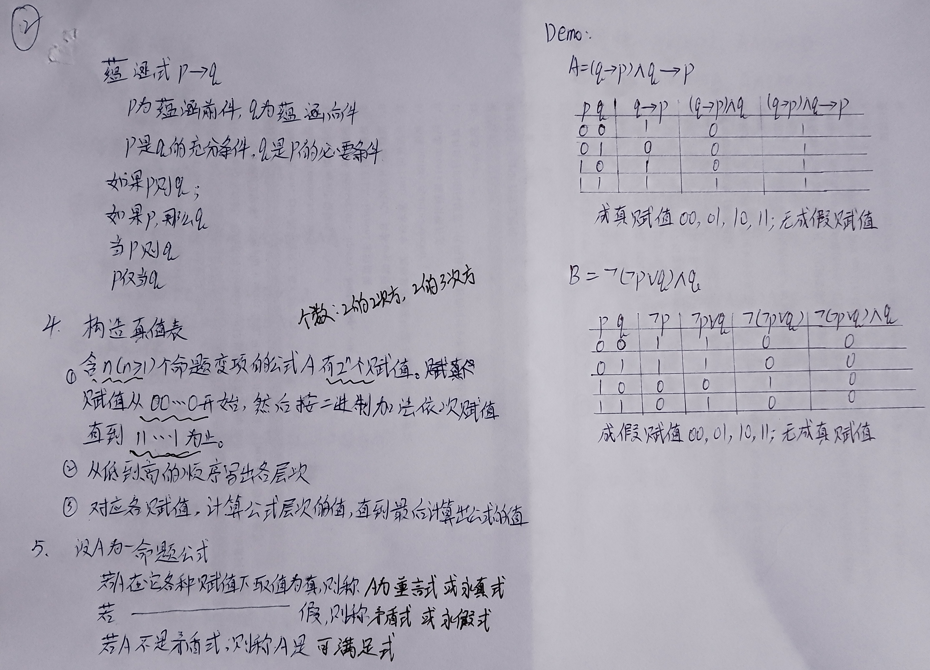 2
蕴涵式 p→q
p为蕴涵前件,q为蕴涵后件
p是q的充分条件,q是p的必要条件
如果p则q;
如果p,那么q
当p则q
p仅当q
个数:2的2次方,2的3次方
4. 构造真值表
① 含n(n≥1)个命题变项的公式A有2ⁿ个赋值。
赋值从00…0开始,然后按二进制加法依次赋值
直到 11…1 为止。
② 从低到高的顺序写出各层次
③ 对应各赋值,计算公式层次的值,直到最后计算出公式的值
5、设A为一命题公式
若A在它各种赋值下取值为真,则称A为重言式或永真式
若 ———— 假,则称矛盾式或永假式
若A不是矛盾式,则称A是可满足式
Demo:
A=(q→p)∧q→p
p q q→p (q→p)∧q (q→p)∧q→p
0 0 1 0 1
0 1 0 0 1
1 0 1 0 1
1 1 1 1 1
成真赋值 00, 01, 10, 11; 无成假赋值
B = ¬(¬p∨q)∧q
p q ¬p ¬p∨q ¬(¬p∨q) ¬(¬p∨q)∧q
0 0 1 1 0 0
0 1 1 1 0 0
1 0 0 0 1 0
1 1 0 1 0 0
成假赋值 00, 01, 10, 11; 无成真赋值